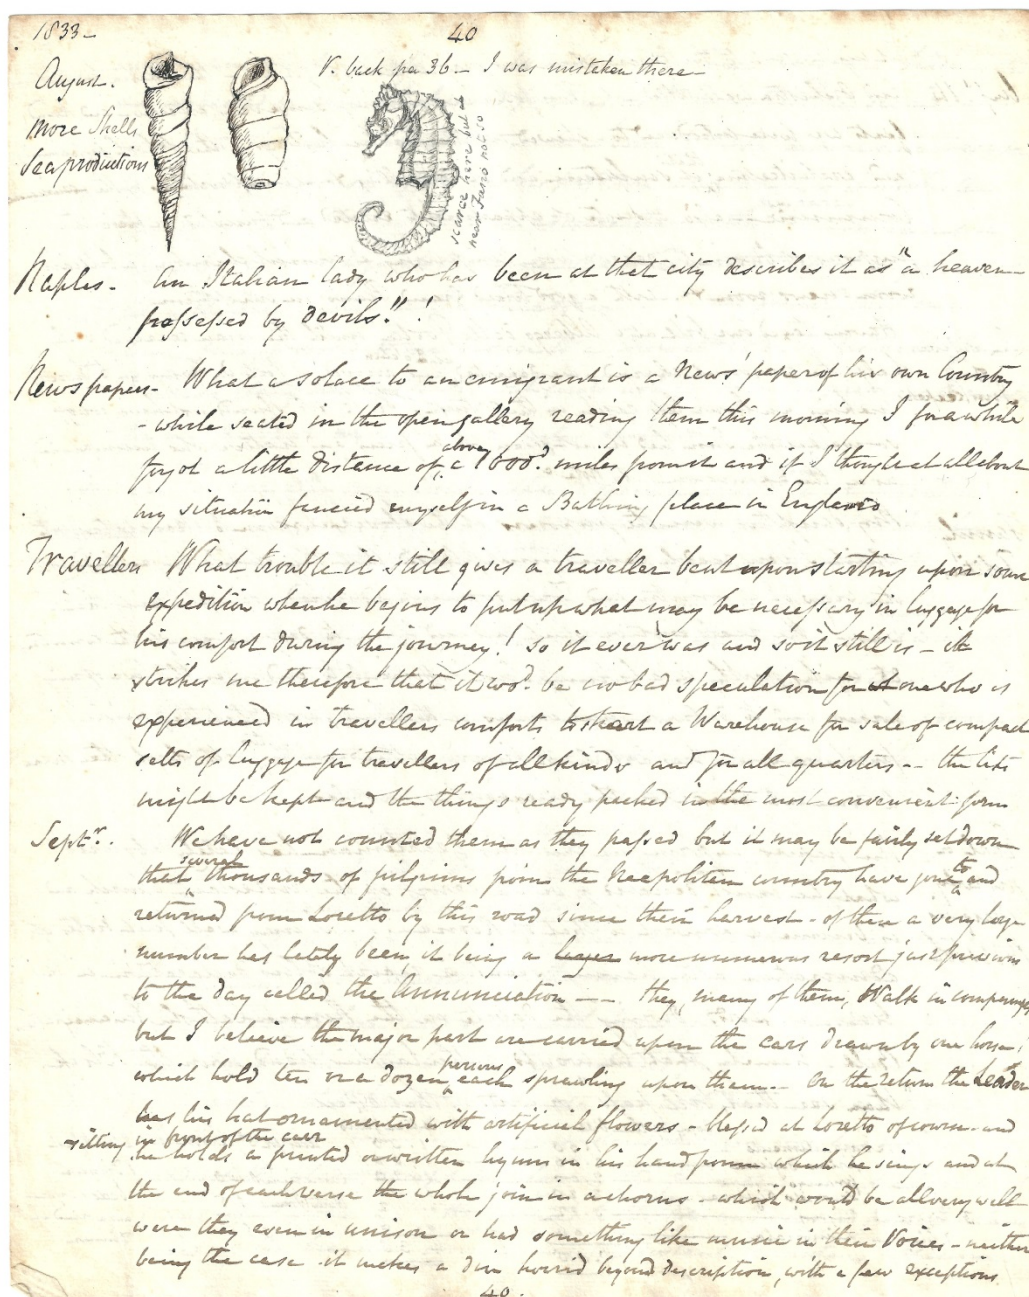 1833-
40
August.
V. back pa 36 - I was mistaken there -
More Shells
Sea productions
scarce here but
near Fano not so
Naples - An Italian lady who has been at that city describes it as "a heaven -
possessed by devils"!
Newspapers - What a solace to an emigrant is a News'paper of his own Country
- while seated in the open gallery reading them this morning I for a while
forgot a little distance of above a 1000d. miles from it and if I thought at all about
my situation fancied myself in a Bathing place in England
Travellers What trouble it still gives a traveller bent upon starting upon some
expedition when he begins to put up what may be necessary in luggage for
his comfort during the journey! so it ever was and so it still is - it
strikes me therefore that it wod. be no bad speculation for one who is
experienced in travellers comforts to start a Warehouse for sale of compact
setts of luggage for travellers of all kinds and for all quarters -- the lists
might be kept and the things ready packed in the most convenient form
Septr. We have not counted them as they passed but it may be fairly set down
that several thousands of pilgrims from the Neapolitan country have gone to and
returned from Loretto by this road since their harvest - of these a very large
number has lately been, it being a larger more numerous resort just previous
to the day called the Annunciation -- they, many of them, Walk in companys
but I believe the major part are carried upon the cars drawn by one horse,
which hold ten or a dozen persons each sprawling upon them -- On the return the Leader
has his hat ornamented with artificial flowers - blessed at Loretto of course - and
sitting in front of the carr
he holds a printed or written hymn in his hand from which he sings and at
the end of each verse the whole join in a chorus - which would be all very well
were they even in unison or had something like music in their Voices - neither
being the case it makes a din horrid beyond description, with a few exceptions
40.